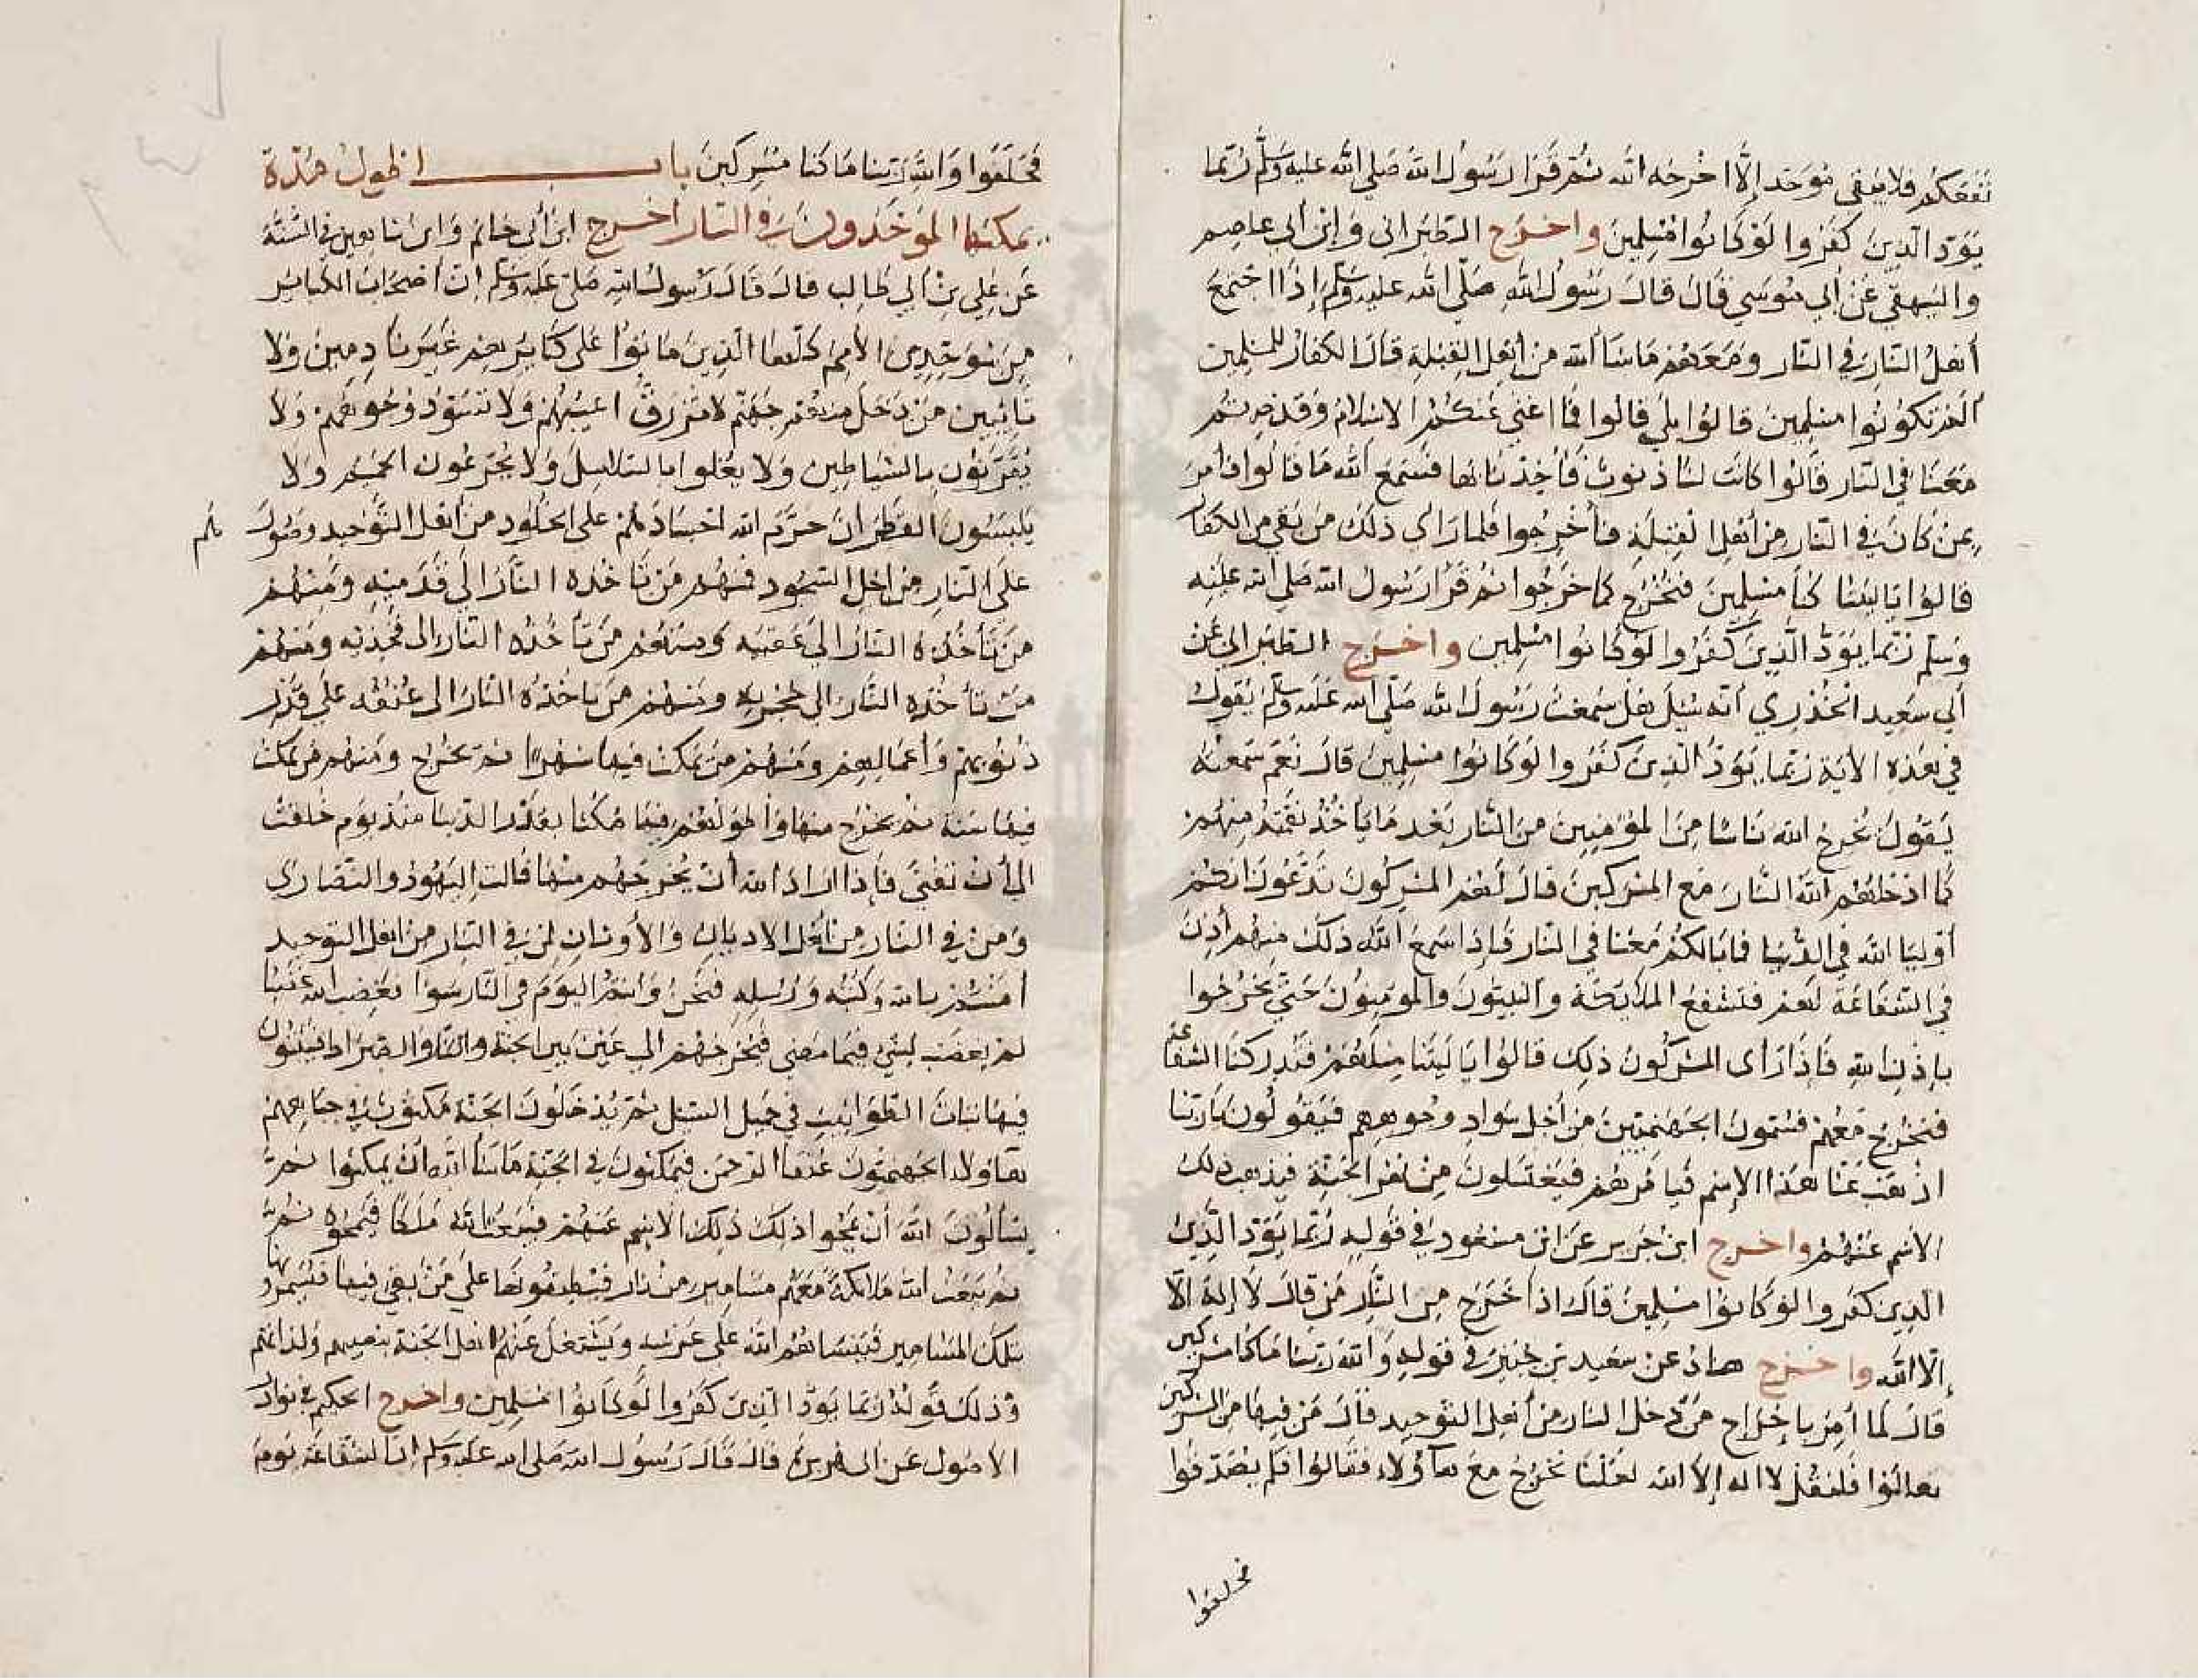 نفعكم فلا يبقى موحد إلا اخرجه الله ثم قرأ رسول الله صلى الله عليه وسلم ربما
يود الذين كفروا لو كانوا مسلمين واخرج الطبراني وابن أبي عاصم
والبيهقي عن أبي موسي قال قال رسول الله صلى الله عليه وسلم إذا اجتمع
أهل النار في النار ومعهم ما شأ الله من أهل القبلة قال الكفار للمسلمين
ألم تكونوا مسلمين قالوا بلي قالوا فما اغني عنكم الاسلام وقد صرتم
معنا في النار قالوا كانت لنا ذنوب فأخذنا بها فسمع الله ما قالوا فأمر
بمن كان في النار من أهل القبلة فأخرجوا فلما راي ذلك من بقي من الكفار
قالوا يا ليتنا كنا مسلمين فنخرج كما خرجوا ثم قرأ رسول الله صلي الله عليه
وسلم ربما يود الذين كفروا لو كانوا مسلمين واخرج الطبراني عن
أبي سعيد الخذري أنه سئل هل سمعت رسول الله صلى الله عليه وسلم يقول
في هذه الآية ربما يود الذين كفروا لو كانوا مسلمين قال نعم سمعته
يقول يخرج الله ناسا من المؤمنين من النار بعد ما ياخذ نقمته منهم
لما ادخلهم الله النار مع المشركين قال لهم المشركون تدعون انكم
أوليا الله في الدنيا فما بالكم معنا في النار فإذا سمع الله ذلك منهم أذن
في الشفاعة لهم فتشفع الملائكة والنبيون والمومنون حتى يخرجوا
بإذن الله فإذا رأى المشركون ذلك قالوا يا ليتنا مثلهم فتدركنا الشفاعة
فنخرج معهم فيسمون الجهنميين من أجل سواد وجوههم فيقولون يا ربنا
اذهب عنا هذا الاسم فيأمرهم فيغتسلون من نهر الجنة فيذهب ذلك
الاسم عنهم واخرج ابن جرير عن ابن مسعود في قوله ربما يود الذين
الذين كفروا لو كانوا مسلمين قال اذا خرج من النار من قال لا إله إلا
إلا الله واخرج هناد عن سعيد بن جبير في قوله والله ربنا ما كنا مشركين
قال لما أمر باخراج من دخل النار من أهل التوحيد قال من فيها من المشركين
تعالوا فلنقل لا اله إلا الله لعلنا نخرج مع هآؤلاء فقالوا فلم يصدقوا
فحلفوا
فحلفوا والله ربنا ما كنا مشركين باب اطول مدة
يمكثها الموحدون في النار أخرج ابن أبي حاتم وابن شاهين في السنة
عن علي بن أبي طالب قال قال رسول الله صلى عليه وسلم إن أصحاب الكبائر
من موحدين الأمم كلها الذين ماتوا على كبائرهم غير نادمين ولا
تائبين من دخل منهم جهنم لا تزرق اعينهم ولا تسود وجوههم ولا
يقرنون بالشياطين ولا يغلوا بالسلاسل ولا يجرعون الحميم ولا
يلبسون القطران حرم الله اجسادهم على الخلود من أهل التوحيد وصور
على النار من اجل السجود فمنهم من تأخذه النار الى قدميه ومنهم
من تأخذه النار الي عقبيه ومنهم من تأخذه النار الى فخذيه ومنهم
من تأخذه النار الى حجزته ومنهم من تاخذه النار الى عنقه علي قدر
ذنوبهم وأعمالهم ومنهم من يمكث فيها شهرا ثم يخرج ومنهم من يمكث
فيها سنة ثم يخرج منها وأطولهم فيها مكثا بقدر الدنيا منذ يوم خلقت
الى أن تفنى فإذا اراد الله أن يخرجهم منها قالت اليهود والنصارى
ومن في النار من أهل الاديان والأوثان لمن في النار من اهل التوحيد
أمنتم بالله وكتبه ورسله فنحن وانتم اليوم في النار سوا فيغضب الله غضبا
لم يغضبه لشئ فيما مضى فيخرجهم الي عين بين الجنة والصراط فينبتون
فيها نبات الطراثيث في حميل السيل ثم يدخلون الجنة مكتوب في جباههم
هاولا الجهنميون عتقاالرحمن فيمكثون في الجنة ما شأ الله أن يمكثوا ثم
يسألون الله أن يمحوا ذلك الاسم عنهم فيبعث الله ملكا فيمحوه ثم
ثم يبعث الله ملائكة معهم مسامير من نار فيطبقونها على من بقي فيها فيسمرونها
بتلك المسامير فينساهم الله على عرشه ويشتغل عنهم اهل الجنة بنعيمهم ولذاتهم
وذلك قوله ربما يود الذين كفروا لو كانوا مسلمين واخرج الحكيم في نوادر
الاصول عن ابي هريرة قال قال رسول الله صلى الله عليه وسلم إنما الشفاعة يوم